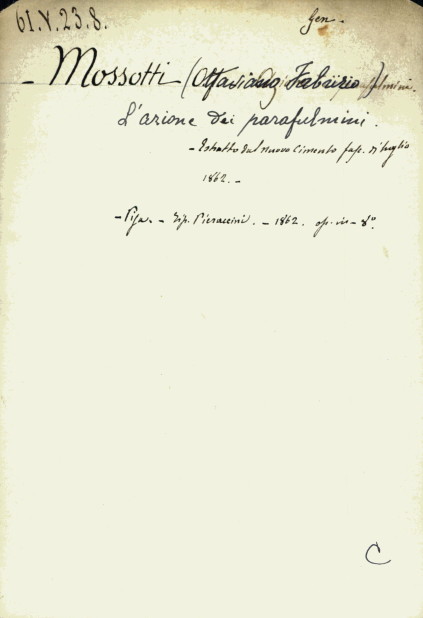 61.V.23.8.
Gen.
- Mossotti (Ottaviano Fabrizio)
L'azione dei parafulmini.
- Estratto dal nuovo Cimento fasc. di luglio
1862. -
- Pisa. - Tip. Pieraccini. - 1862. op. in - 8°.
C